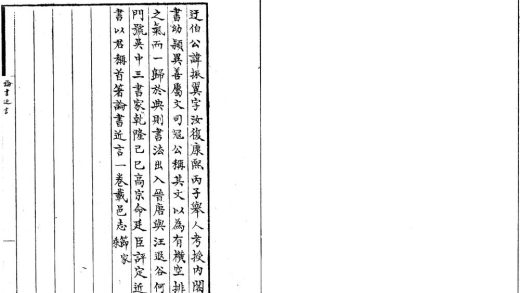 迂伯公諱振翼字汝復康熙丙子舉人考授內閣
書幼穎異善屬文司寇公稱其文以為有橫空排
之氣而一歸於典則書法出入晉唐與汪退谷何
門號吳中三書家乾隆己巳高宗命廷臣評定近
書以君稱首著論書近言一卷載邑志節家乘
論書近言